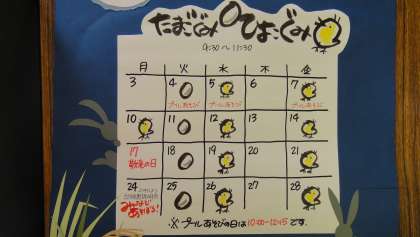 たまごぐみ ひよこぐみ
9:30～11:30
月 火 水 木 金
3 4 5 6 7
プールあそび プールあそび プールあそび
10 11 12 13 14
17 18 19 20 21
敬老の日
24 25 26 27 28
みんなで
あそぼう!
※プールあそびの日は10:00～10:45です。